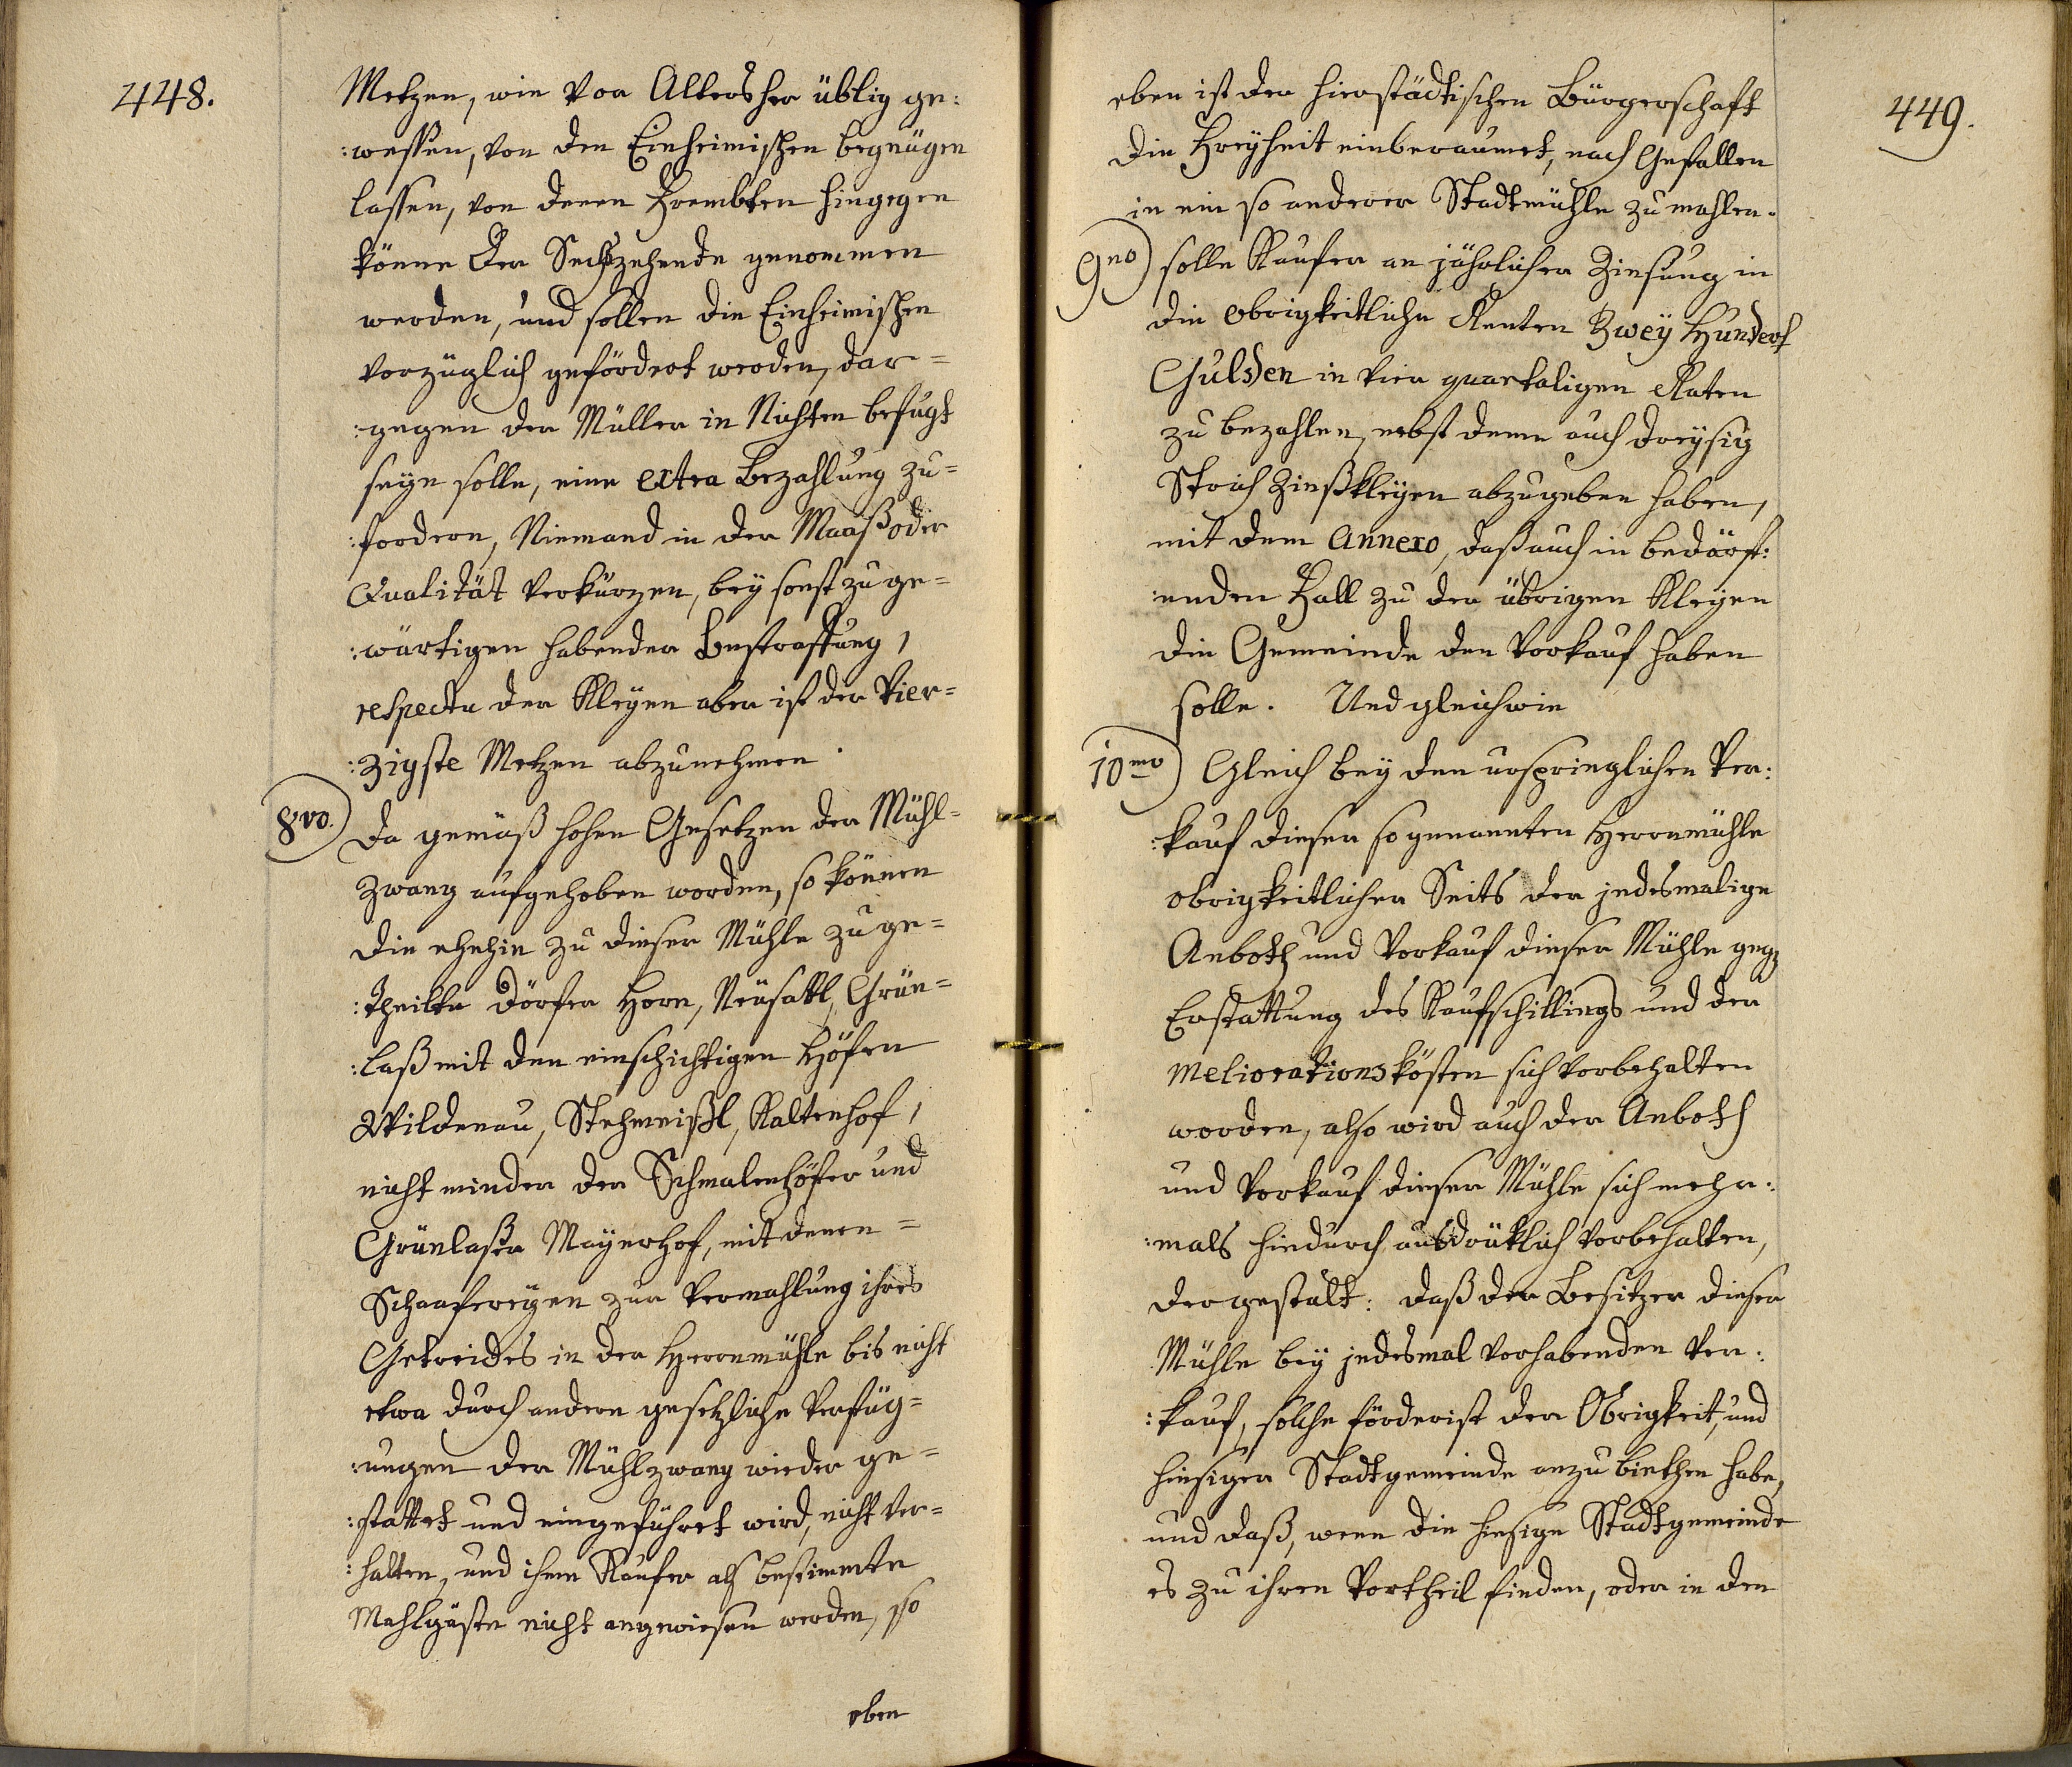 448.
Metzen, wie von Alters her üblig ge:
:wessen, von den Einheimischen begnügen
lassen, von denen Frembten hingegen
könne der Sechszehende genommen
werden, und sollen die Einheimischen
vorzüglich gefördert werden, dar=
:gegen der Müller in Nichten befugt
seyn solle, eine extra Bezahlung zu=
:fordern, Niemand in der Maaß oder
Qualität verkürzen, bey sonst zu ge=
:wärtigen habender Bestraffung,
respectu der Kleyen aber ist der Vier=
:zigste Metzen abzunehmen.
8vo. Da gemäß hohen Gesetzen der Mühl=
Zwang aufgehoben worden, so können
die ehehin zu dieser Mühle zu ge=
:theilte Dörfer Horn, Neusattl, Grün=
:laß mit den einschichtigen Höfen
Wildenau, Stehmeißl, Kaltenhof,
nicht minder der Schmalenhöfer und
Grünlaßer Mayerhof, mit denen=
Schaafereyen zur Vermahlung ihres
Getreides in der Herrnmühle bis nicht
etwa durch andere gesetzliche Verfüg=
:ungen der Mühlzwang wieder ge=
:stattet und eingeführet wird, nicht ver=
:halten, und ihme Kaufer als bestimmte
Mahlgäste nicht angewiesen werden, so
eben
449.
eben ist der hierstädtischen Bürgerschaft
die Freyheit einberaumet, nach Gefallen
in ein so anderer Stadtmühle zu mahlen.
9no) solle Kaufer an jährlicher Zinsung in
die obrigkeitliche Renten Zwey Hundert
Gulden in vier quartaligen Raten
zu bezahlen, nebst deme auch dreysig
Strich Zinßkleyen abzugeben haben,
mit dem Annexo, daß auch in bedärf:
:enden Fall zu den übrigen Kleyen
die Gemeinde den Vorkauf haben
solle. Und gleichwie
10mo) Gleich bey den ursprünglichen Ver:
:kauf dieser so genannten Herrnmühle
obrigkeitlicher Seits der jedesmalige
Anboth und Vorkauf dieser Mühle geg
Erstattung des Kaufschillings und der
Meliorationskösten sich vorbehalten
worden, also wird auch der Anboth
und Vorkauf dieser Mühle sich mehr:
:mals hiedurch ausdrücklich vorbehalten,
dergestalt: daß der Besitzer dieser
Mühle bey jedesmal vorhabenden Ver:
:kauf, solche förderist der Obrigkeit, und
hiesiger Stadtgemeinde anzu biethen habe,
und daß, wenn die hiesige Stadtgemeinde
es zu ihren Vortheil finden, oder in den